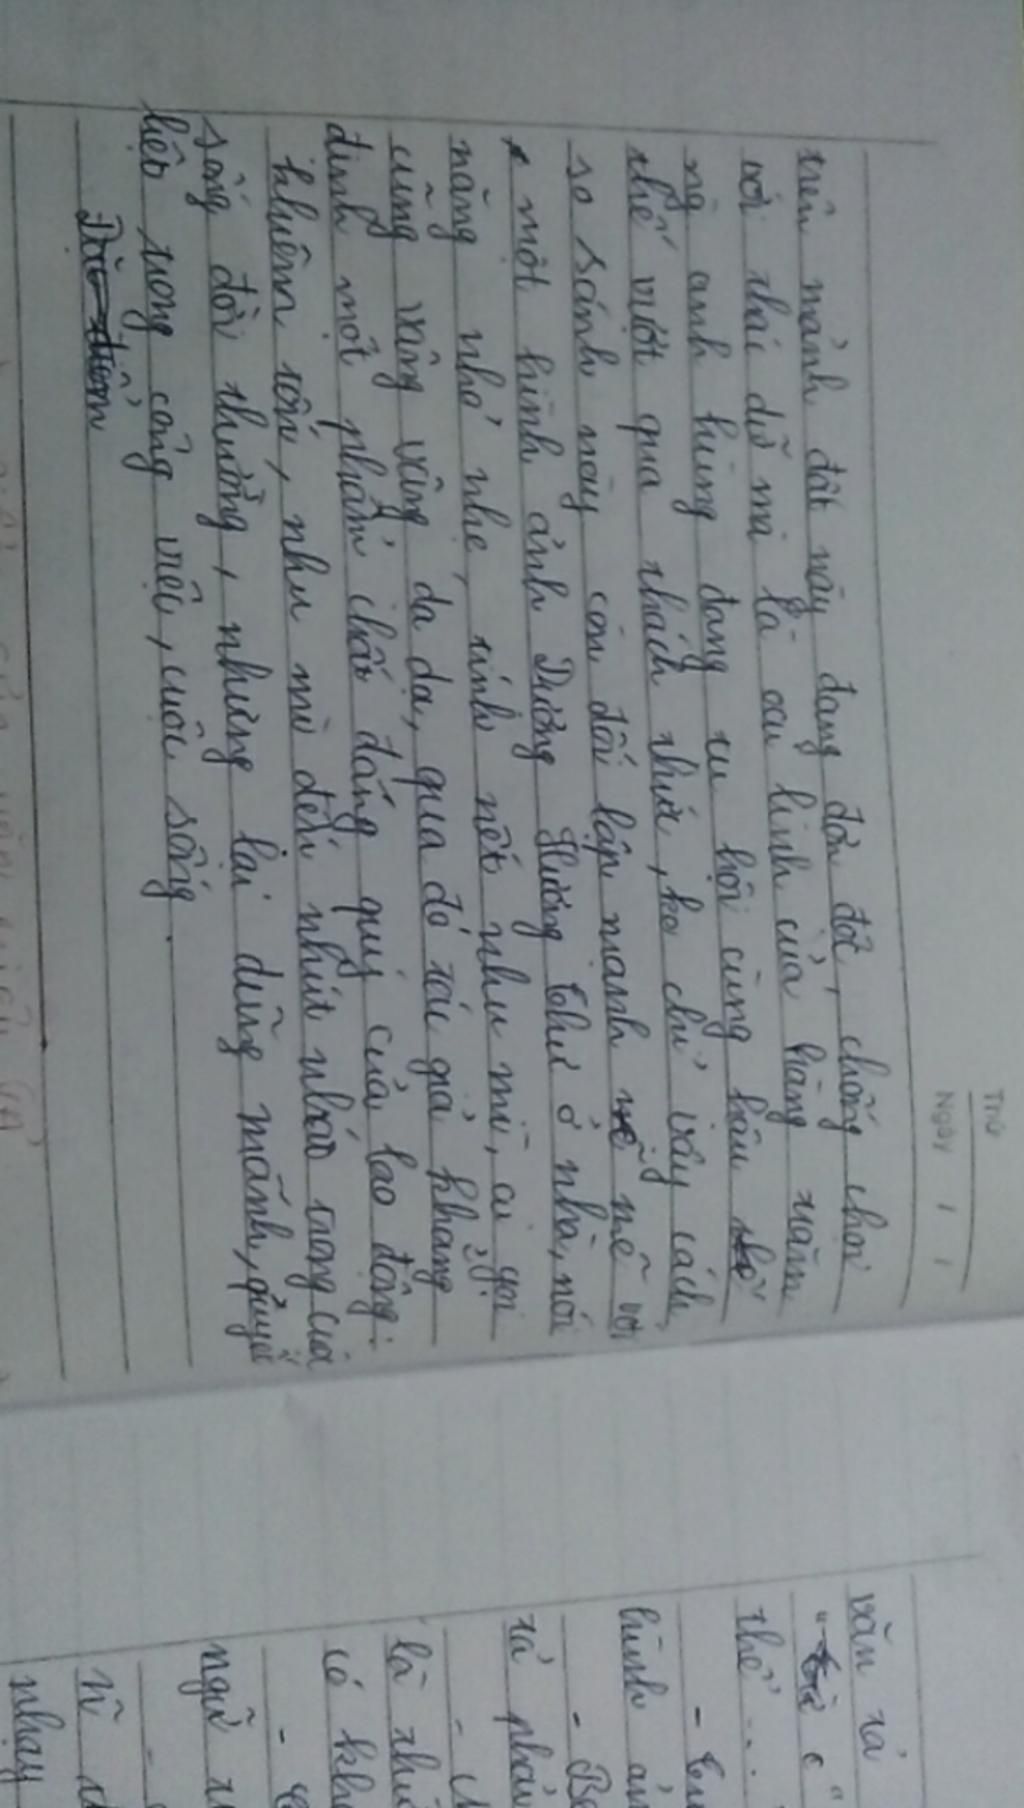 Thứ
Ngày / /
trên mảnh đất này đang đón đợi, chống chọi
với thác dữ mà là oai linh của hàng trăm
ng anh hùng đang tụ hội cùng hậu
thế vượt qua thách thức, ko chỉ vậy cách
so sánh này còn đối lập mạnh mẽ với
một hình ảnh Dượng Hương Thư ở nhà, nói
năng nhỏ nhẹ, tính nết nhu mì, ai gọi
cũng vâng vâng dạ dạ, qua đó tác giả khẳng
định một phẩm chất đáng quý của lao động:
khiêm tốn, nhu mì đến nhút nhát trong cuộc
sống đời thường, nhưng lại dũng mãnh, quyết
liệt trong công việc, cuộc sống.
văn tả
thể...
-
hình ản
- Bo
tả phản
-
là thứ
có kh
-
ngữ t
-
nhạy